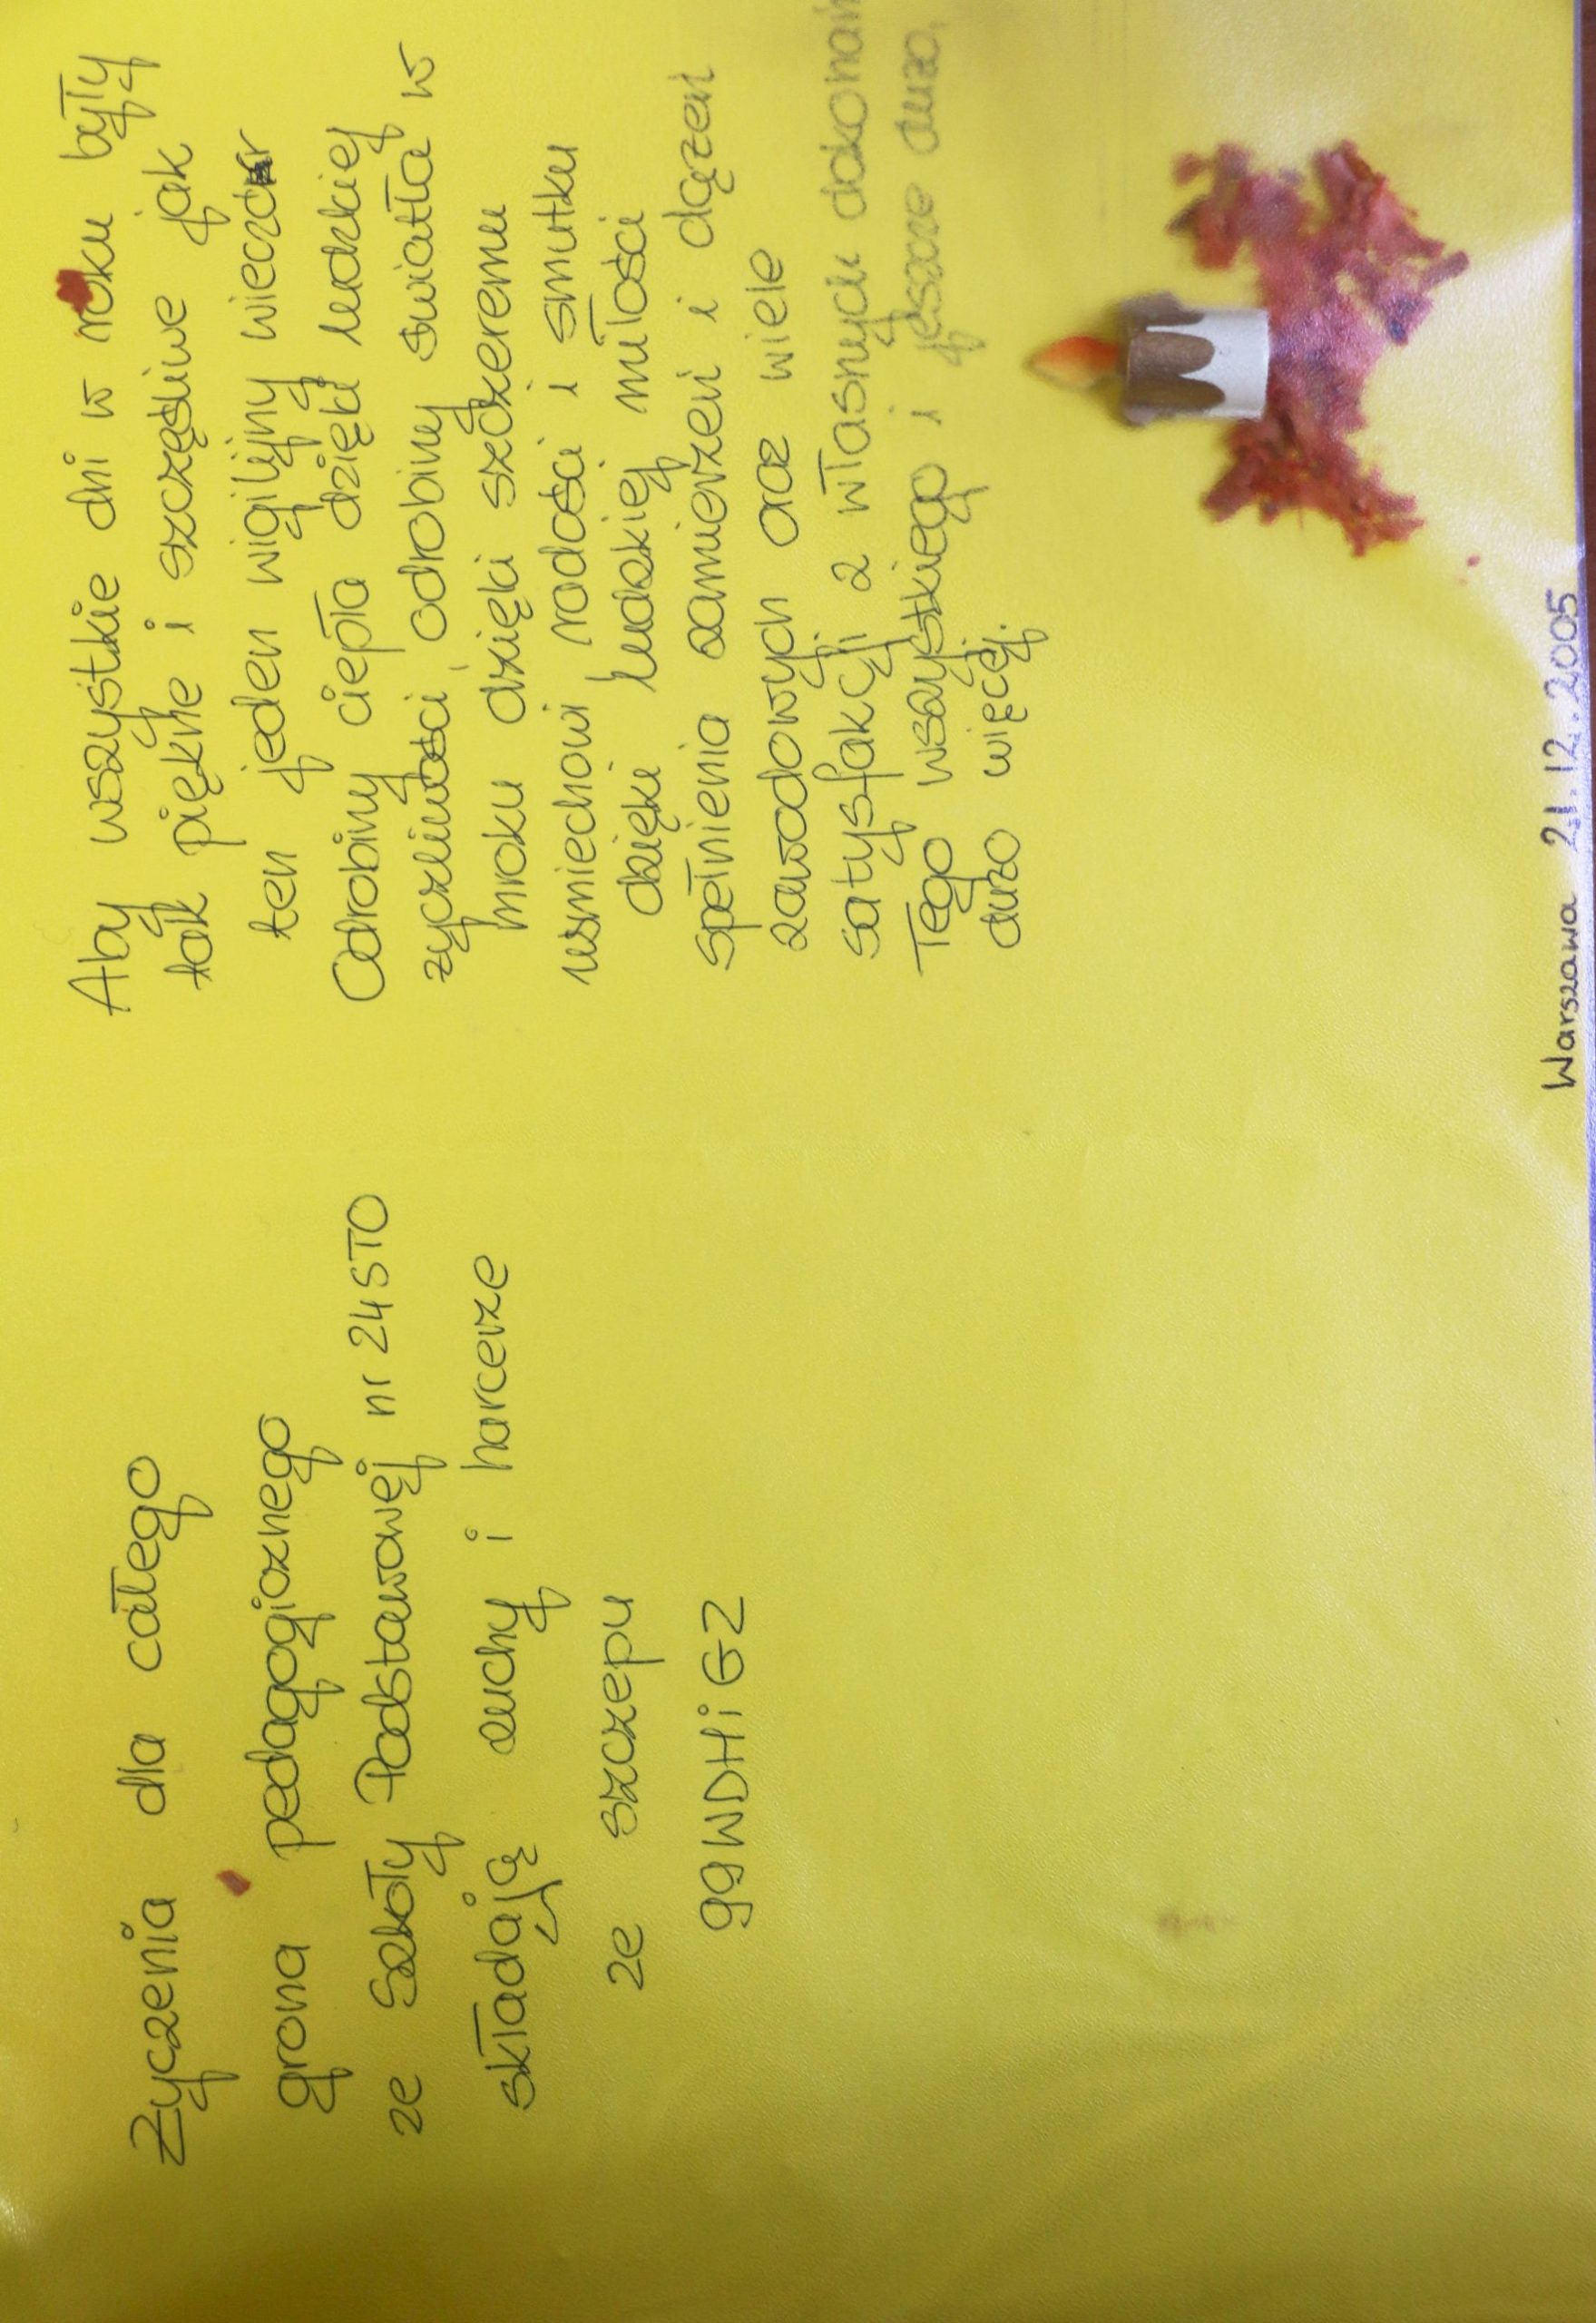 Życzenia dla całego
grona pedagogicznego
ze Szkoły Podstawowej nr 24 STO
składają zuchy i harcerze
ze szczepu
99 WDHiGZ
Aby wszystkie dni w roku były
tak piękne i szczęśliwe jak
ten jeden wigilijny wieczór
Odrobiny ciepła dzięki ludzkiej
życzliwości, odrobiny światła w
mroku dzięki szczeremu
uśmiechowi radości i smutku
dzięki ludzkiej miłości
spełnienia zamierzeń i dążeń
zawodowych oraz wiele
satysfakcji z własnych dokonań
Tego wszystkiego i jeszcze dużo,
dużo więcej.
Warszawa 21.12.2005